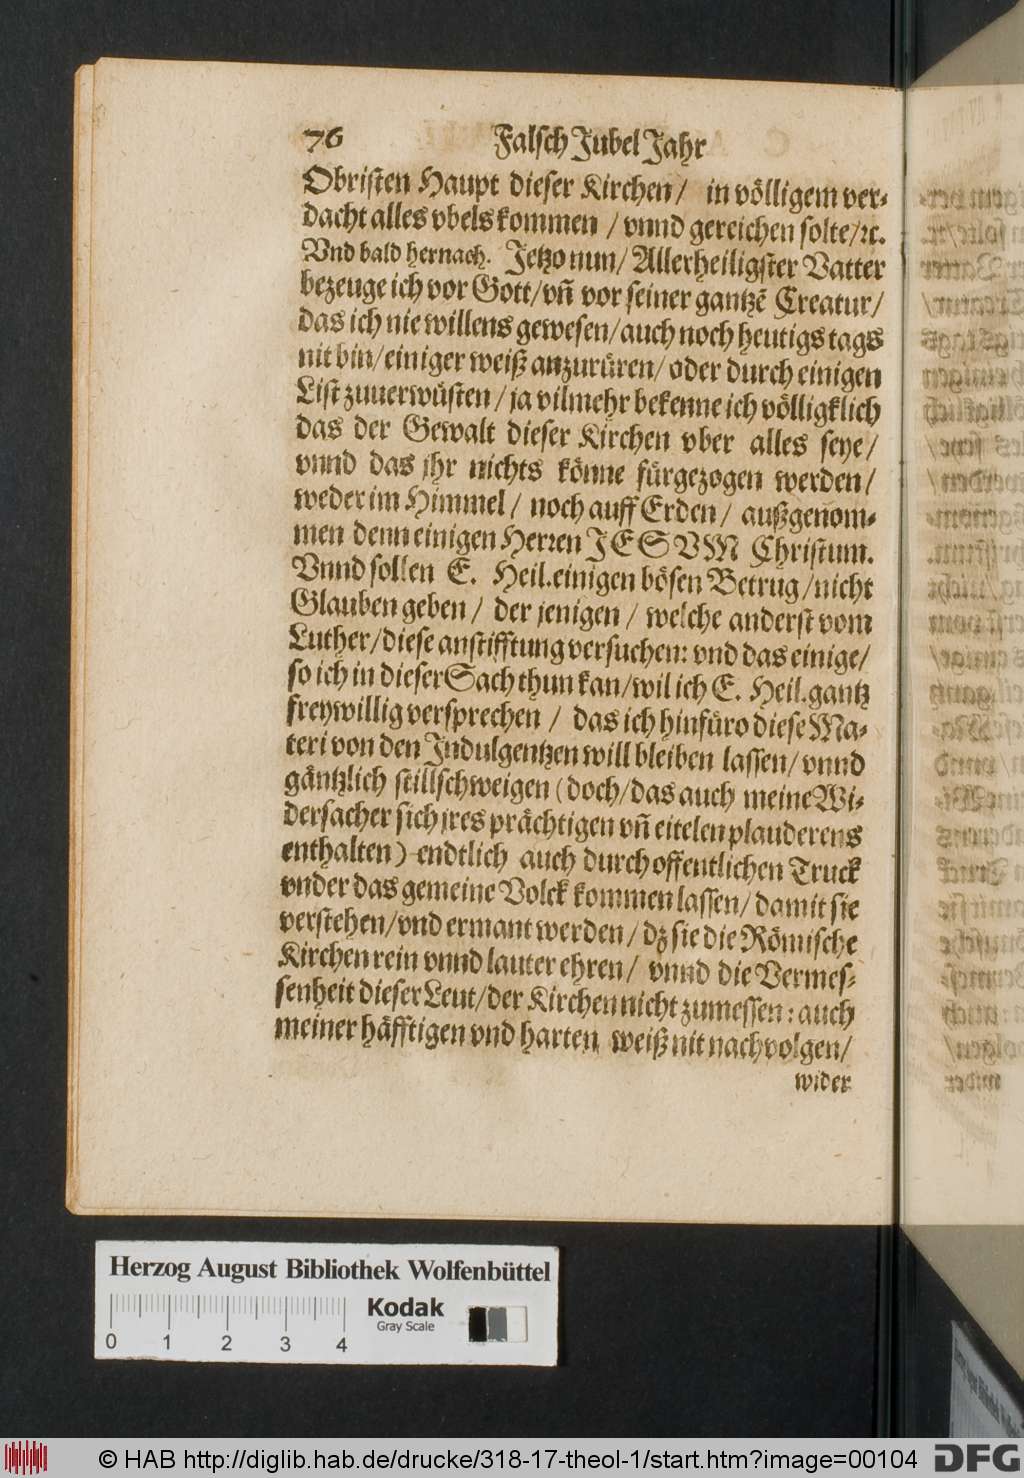 76 Falsch Jubel Jahr
Obristen Haupt dieser Kirchen/ in völligem ver-
dacht alles vbels kommen / vnnd gereichen solte/ꝛc.
Vnd bald hernach. Jetzo nun/ Allerheiligster Vatter
bezeuge ich vor Gott/ vñ vor seiner gantzẽ Creatur/
das ich nie willens gewesen/ auch noch heutigs tags
nit bin/ einiger weiß anzurüren/ oder durch einigen
List zuuerwüsten / ja vilmehr bekenne ich völligklich
das der Gewalt dieser Kirchen vber alles seye/
vnnd das jhr nichts könne fürgezogen werden/
weder im Himmel / noch auff Erden / außgenom-
men denn einigen Herren JESVM Christum.
Vnnd sollen E. Heil. einigen bösen Betrug / nicht
Glauben geben / der jenigen / welche anderst vom
Luther/ diese anstifftung versuchen: vnd das einige/
so ich in dieser Sach thun kan/ wil ich E. Heil. gantz
freywillig versprechen / das ich hinfüro diese Ma-
teri von den Indulgentzen will bleiben lassen/ vnnd
gäntzlich stillschweigen (doch/ das auch meine Wi-
dersacher sich jres prächtigen vñ eitelen plauderens
enthalten) endtlich auch durch offentlichen Truck
vnder das gemeine Volck kommen lassen/ damit sie
verstehen/ vnd ermant werden / dz sie die Römische
Kirchen rein vnnd lauter ehren / vnnd die Vermes-
senheit dieser Leut/ der Kirchen nicht zumessen: auch
meiner häfftigen vnd harten weiß nit nachvolgen/
wider
Herzog August Bibliothek Wolfenbüttel
Kodak
Gray Scale
0 1 2 3 4
© HAB http://diglib.hab.de/drucke/318-17-theol-1/start.htm?image=00104
DFG